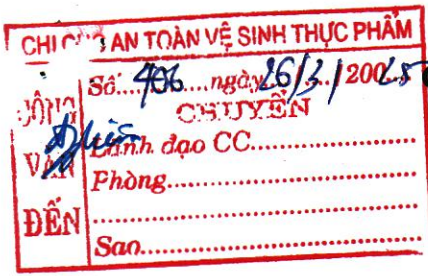 CHI CỤC AN TOÀN VỆ SINH THỰC PHẨM
CÔNG VĂN ĐẾN
Số....406.....ngày 26/3./200
CHUYỂN
Lãnh đạo CC
Phòng
Sao